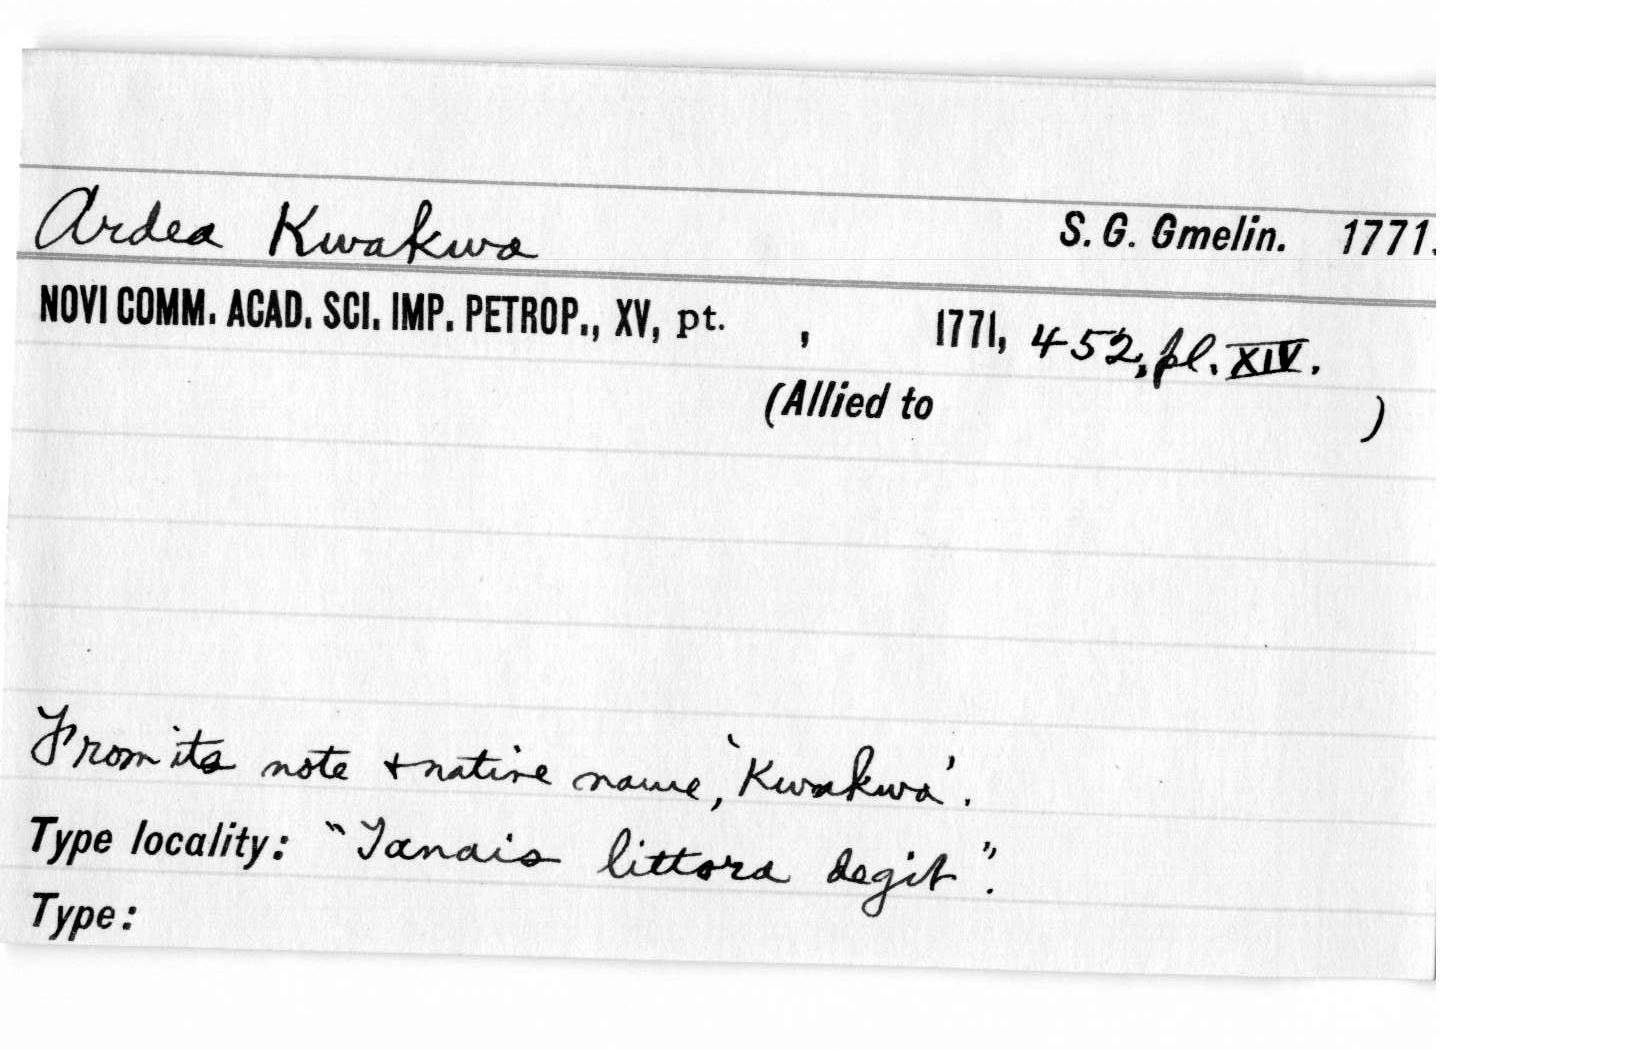 Ardea Kwakwa S. G. Gmelin. 1771.
NOVI COMM. ACAD. SCI. IMP. PETROP., XV, pt. , 1771, 452, pl. XIV.
(Allied to )
From its note + native name, 'Kwakwa'.
Type locality: "Tanais littora degit".
Type: